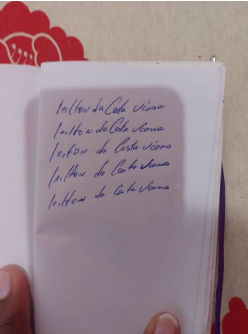 Milton da Costa Viana
Milton da Costa Viana
Milton da Costa Viana
Milton da Costa Viana
Milton da Costa Viana